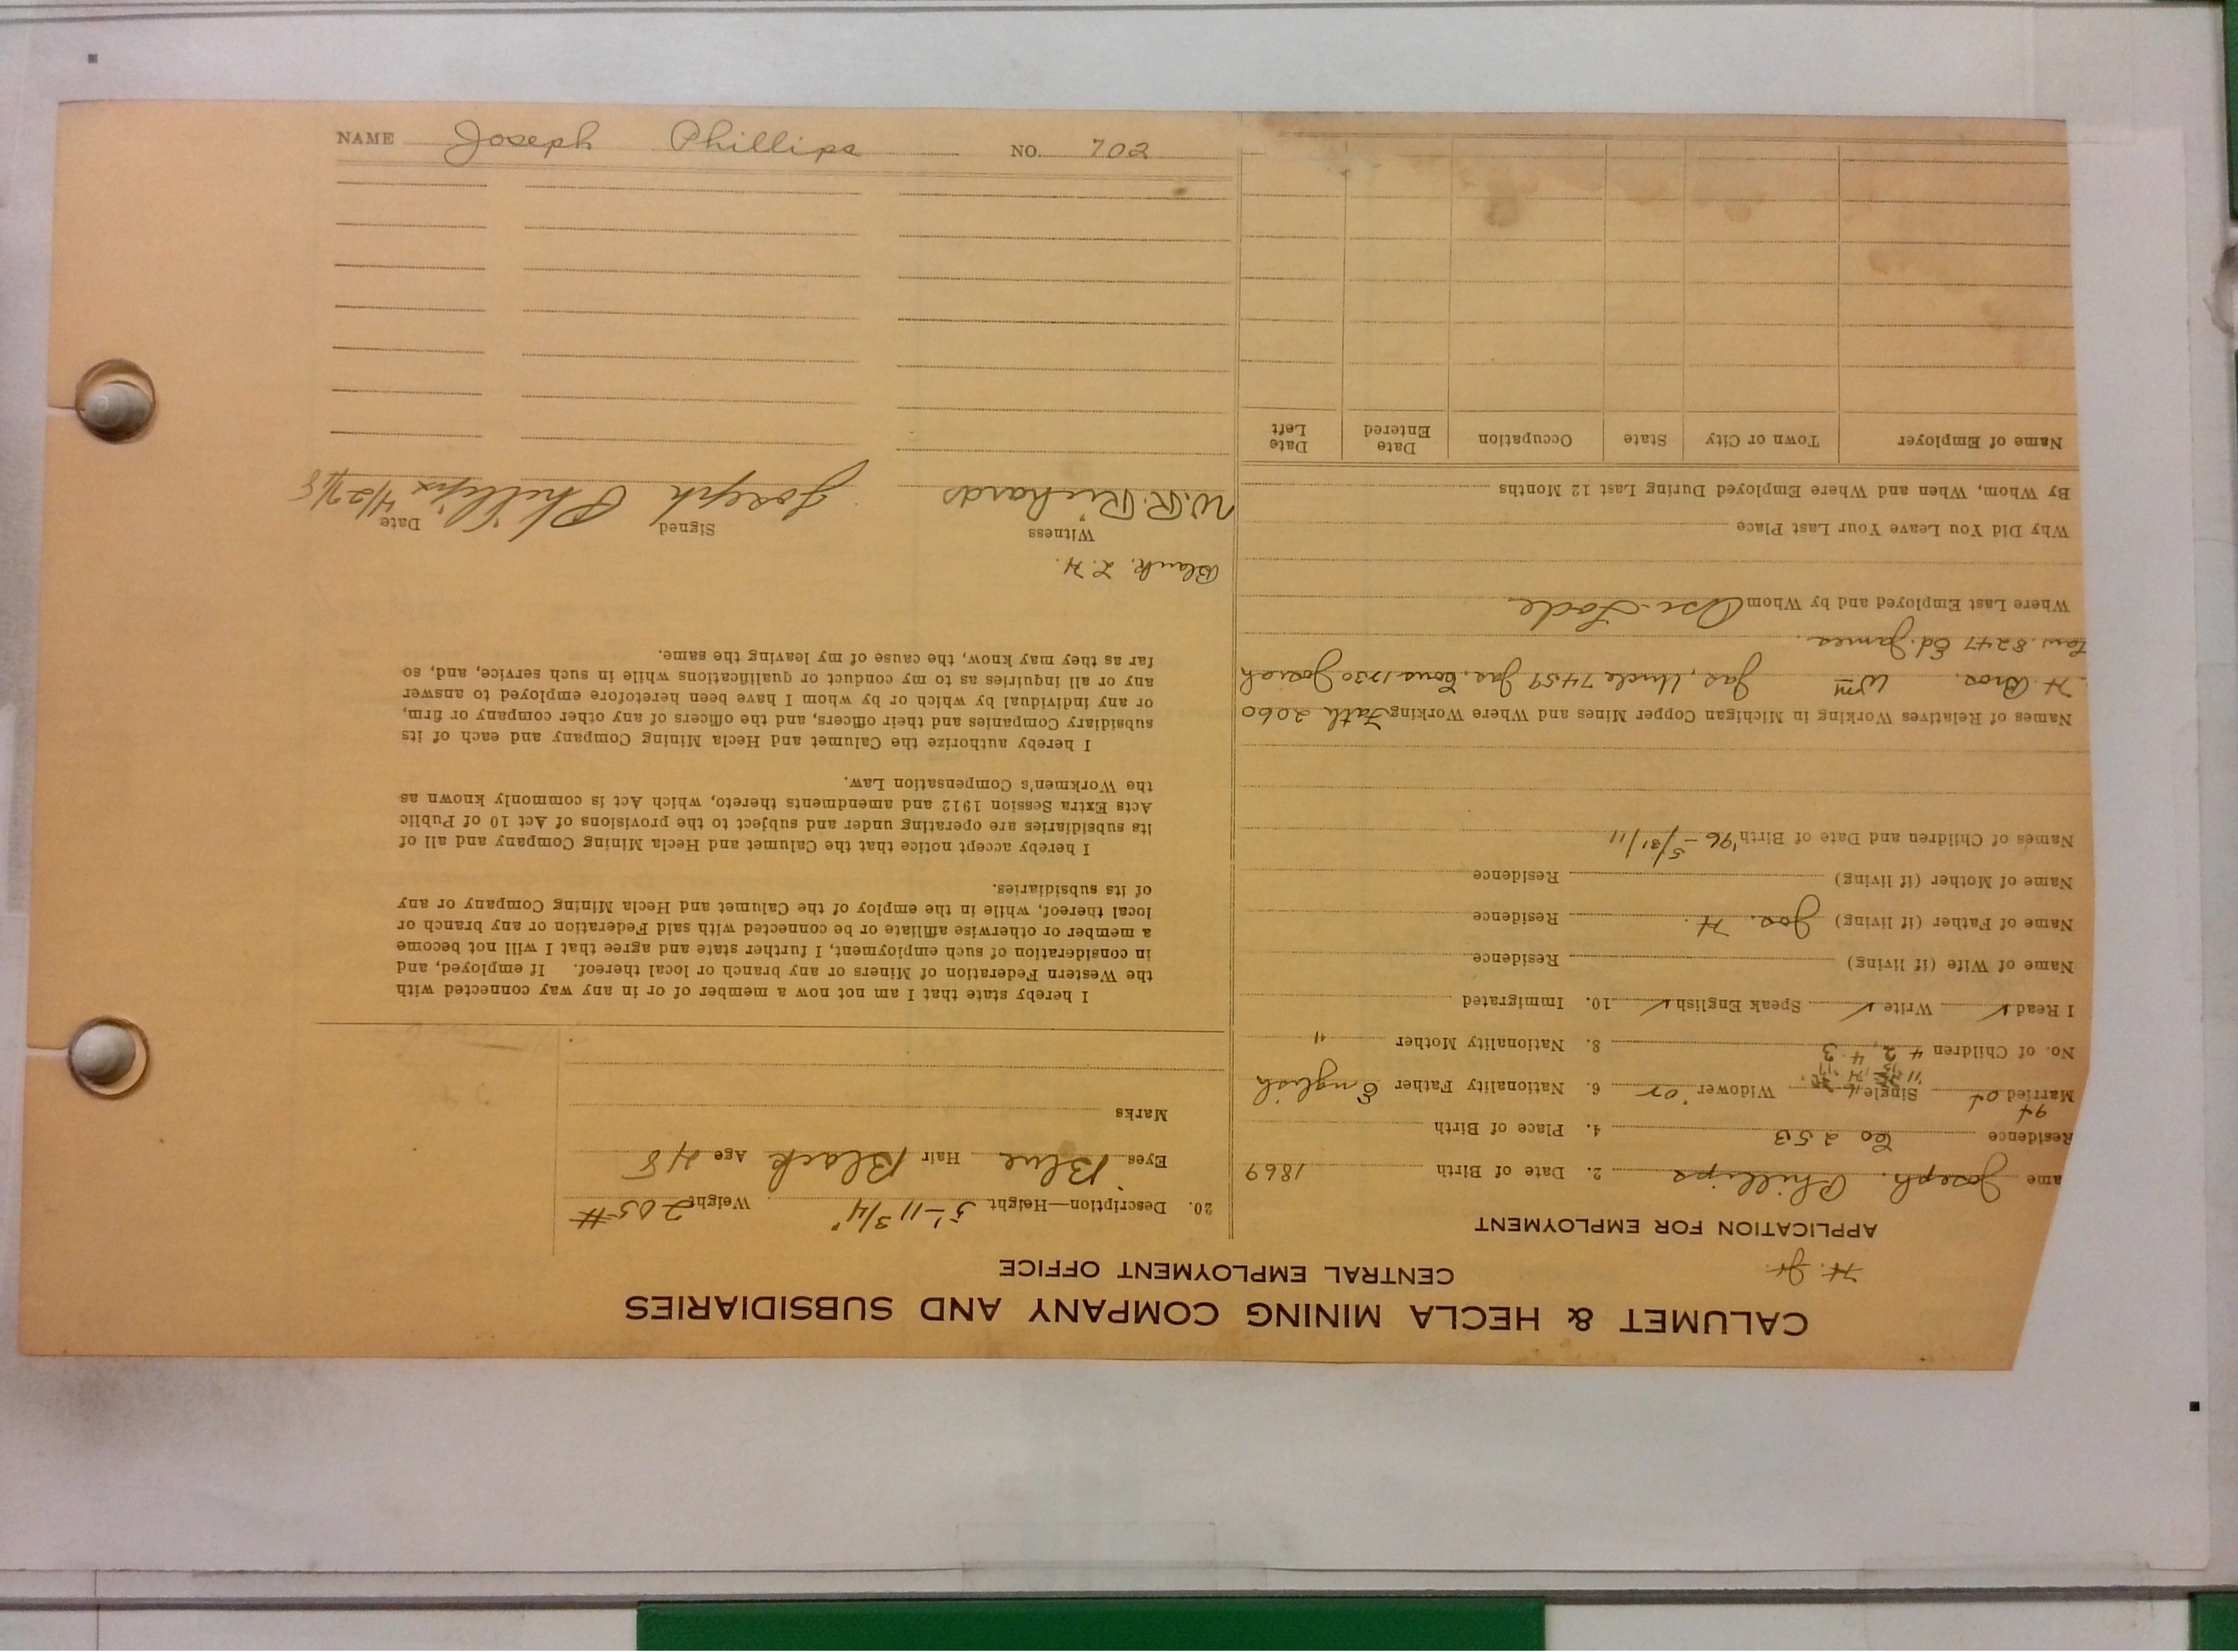 NAME Joseph Phillips NO. 702
CALUMET & HECLA MINING COMPANY AND SUBSIDIARIES
CENTRAL EMPLOYMENT OFFICE
H. Jr
APPLICATION FOR EMPLOYMENT
ame Joseph. Phillips 2. Date of Birth 1869
Residence Co 2513 4. Place of Birth
Married Single Widower 6. Nationality Father English
No. of Children 4 2, 4 3 8. Nationality Mother "
I Read ✓ Write ✓ Speak English ✓ 10. Immigrated
Name of Wife (if living) Residence
Name of Father (if living) Jos. H. Residence
Name of Mother (if living) Residence
Names of Children and Date of Birth '96 - 5/31/11
Names of Relatives Working in Michigan Copper Mines and Where Working Fath 2060
H. Bros. Wm Jas, Uncle 7459 Jas. Cous 1230 Josiah
8247 Ed. James.
Where Last Employed and by Whom Osc. Lode
Why Did You Leave Your Last Place
By Whom, When and Where Employed During Last 12 Months
Name of Employer Town or City State Occupation Date Entered Date Left
20. Description—Height 5'-11 3/4" Weight 205 #
Eyes Blue Hair Black Age 48
Marks
I hereby state that I am not now a member of or in any way connected with
the Western Federation of Miners or any branch or local thereof. If employed, and
in consideration of such employment, I further state and agree that I will not become
a member or otherwise affiliate or be connected with said Federation or any branch or
local thereof, while in the employ of the Calumet and Hecla Mining Company or any
of its subsidiaries.
I hereby accept notice that the Calumet and Hecla Mining Company and all of
its subsidiaries are operating under and subject to the provisions of Act 10 of Public
Acts Extra Session 1912 and amendments thereto, which Act is commonly known as
the Workmen's Compensation Law.
I hereby authorize the Calumet and Hecla Mining Company and each of its
subsidiary Companies and their officers, and the officers of any other company or firm,
or any individual by which or by whom I have been heretofore employed to answer
any or all inquiries as to my conduct or qualifications while in such service, and, so
far as they may know, the cause of my leaving the same.
Black. L.H.
Witness Signed Date
W.R. Richards Joseph Phillips 4/27/18